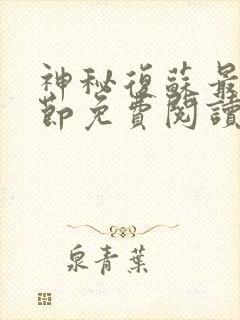 神秘復蘇最
節免費閱讀
泉青葉